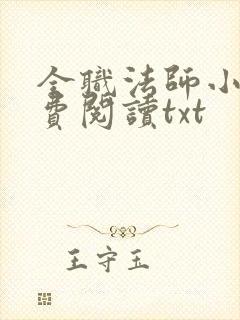 全職法師小
費閱讀txt
王守玉